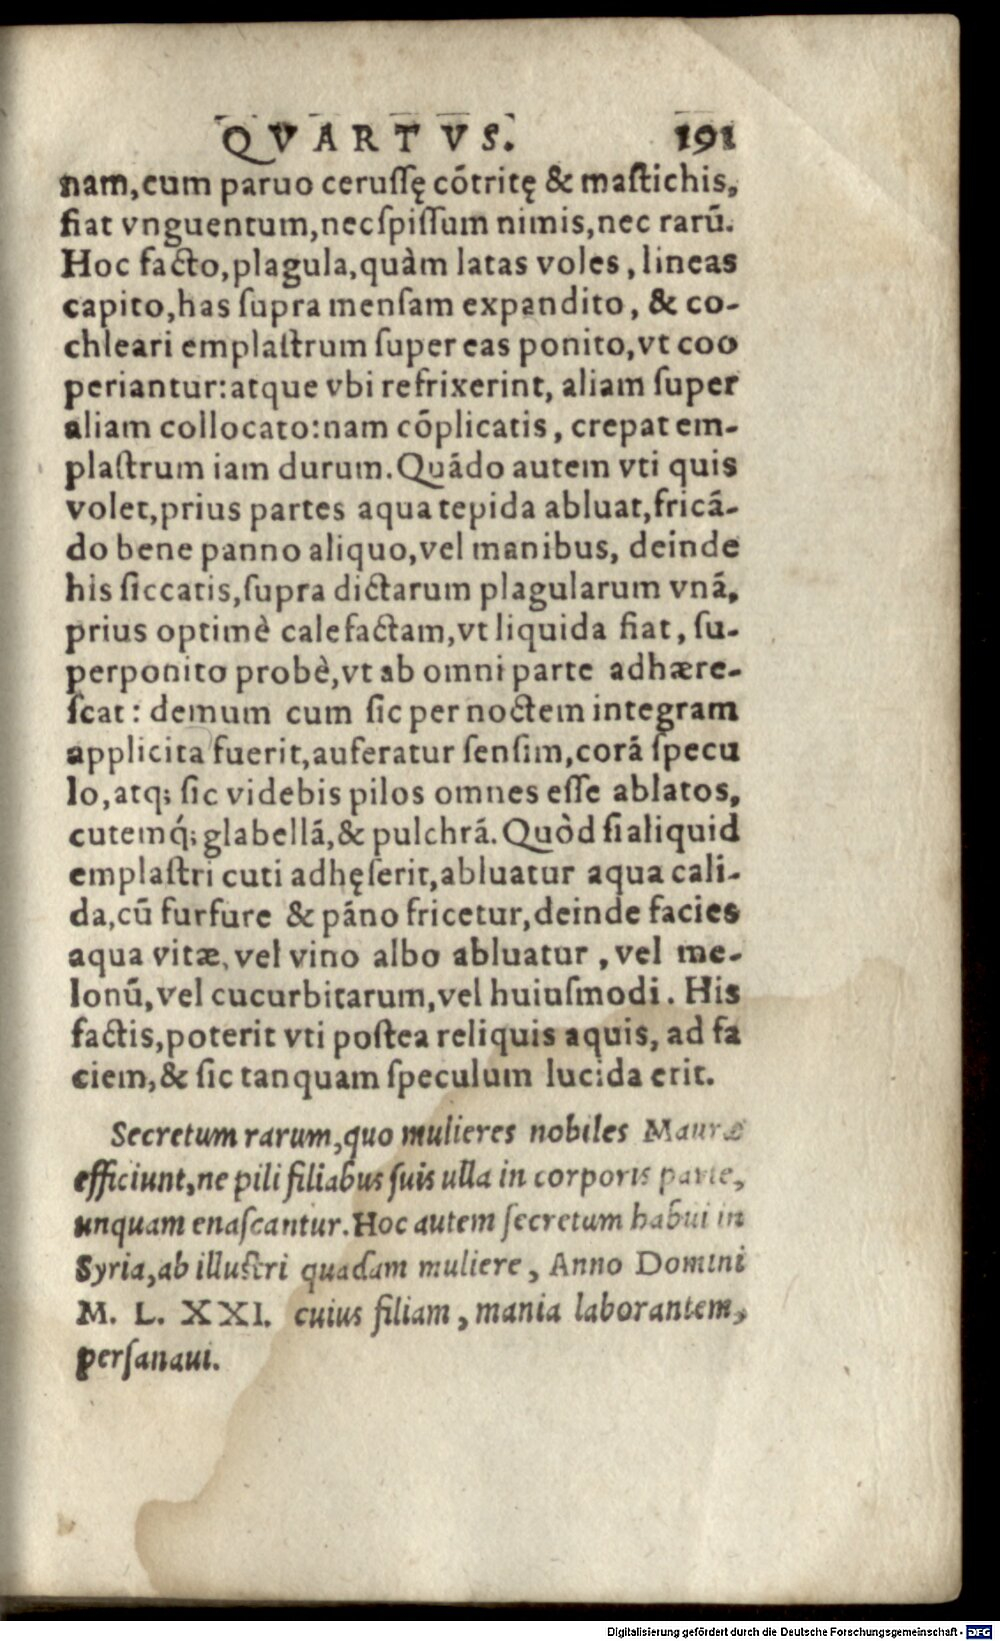 QVARTVS. 191
nam, cum paruo ceruſſę cõtritę & maſtichis,
fiat vnguentum, nec ſpiſſum nimis, nec rarũ.
Hoc facto, plagula, quàm latas voles, lineas
capito, has ſupra menſam expandito, & co-
chleari emplaſtrum ſuper eas ponito, vt coo
periantur: atque vbi refrixerint, aliam ſuper
aliam collocato: nam cõplicatis, crepat em-
plaſtrum iam durum. Quãdo autem vti quis
volet, prius partes aqua tepida abluat, fricã-
do bene panno aliquo, vel manibus, deinde
his ſiccatis, ſupra dictarum plagularum vnã,
prius optimè calefactam, vt liquida fiat, ſu-
perponito probè, vt ab omni parte adhære-
ſcat: demum cum ſic per noctem integram
applicita fuerit, auferatur ſenſim, corã ſpecu
lo, atq; ſic videbis pilos omnes eſſe ablatos,
cutemq́; glabellã, & pulchrã. Quòd ſi aliquid
emplaſtri cuti adhęſerit, abluatur aqua cali-
da, cũ furfure & pãno fricetur, deinde facies
aqua vitæ, vel vino albo abluatur, vel me-
lonũ, vel cucurbitarum, vel huiuſmodi. His
factis, poterit vti poſtea reliquis aquis, ad fa
ciem, & ſic tanquam ſpeculum lucida erit.
Secretum rarum, quo mulieres nobiles Mauræ
efficiunt, ne pili filiabus ſuis ulla in corporis parte,
unquam enaſcantur. Hoc autem ſecretum habui in
Syria, ab illuſtri quadam muliere, Anno Domini
M. L. XXI. cuius filiam, mania laborantem,
perſanaui.
Digitalisierung gefördert durch die Deutsche Forschungsgemeinschaft - DFG